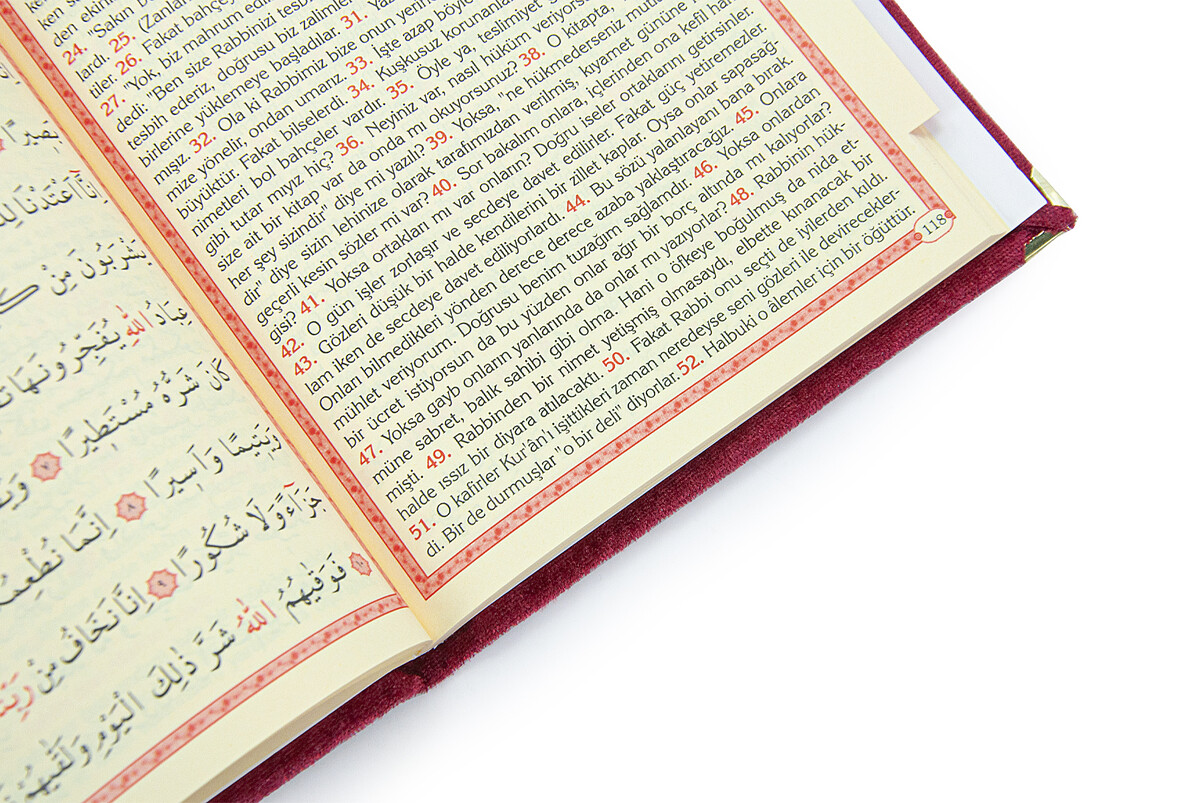 den ekin
24. "Sakın
lardı. 25. (Zanlar
tiler. 26. Fakat bahçey
27. "Yok, biz mahrum edi
dedi: "Ben size Rabbinizi tesb
tesbih ederiz, doğrusu biz zalimler
birlerine yüklemeye başladılar. 31. Yaz
mışız. 32. Ola ki Rabbimiz bize onun yerin
mize yönelir, ondan umarız. 33. İşte azap böyle
büyüktür. Fakat bilselerdi. 34. Kuşkusuz korunanla
nimetleri bol bahçeler vardır. 35. Öyle ya, teslimiyet
gibi tutar mıyız hiç? 36. Neyiniz var, nasıl hüküm veriyors
size ait bir kitap var da onda mı okuyorsunuz? 38. O kitapta,
her şey sizindir" diye mi yazılı? 39. Yoksa, "ne hükmederseniz mutl
dir" diye sizin lehinize olarak tarafımızdan verilmiş, kıyamet gününe
geçerli kesin sözler mi var? 40. Sor bakalım onlara, içlerinden ona kefil han
gisi? 41. Yoksa ortakları mı var onların? Doğru iseler ortaklarını getirsinler.
42. O gün işler zorlaşır ve secdeye davet edilirler. Fakat güç yetiremezler.
43. Gözleri düşük bir halde kendilerini bir zillet kaplar. Oysa onlar sapasağ-
lam iken de secdeye davet ediliyorlardı. 44. Bu sözü yalanlayanı bana bırak.
Onları bilmedikleri yönden derece derece azaba yaklaştıracağız. 45. Onlara
mühlet veriyorum. Doğrusu benim tuzağım sağlamdır. 46. Yoksa onlardan
bir ücret istiyorsun da bu yüzden onlar ağır bir borç altında mı kalıyorlar?
47. Yoksa gayb onların yanlarında da onlar mı yazıyorlar? 48. Rabbinin hük-
müne sabret, balık sahibi gibi olma. Hani o öfkeye boğulmuş da nida et-
mişti. 49. Rabbinden bir nimet yetişmiş olmasaydı, elbette kınanacak bir
halde ıssız bir diyara atılacaktı. 50. Fakat Rabbi onu seçti de iyilerden kıldı.
51. O kafirler Kur'ân'ı işittikleri zaman neredeyse seni gözleri ile devirecekler-
di. Bir de durmuşlar "o bir deli" diyorlar. 52. Halbuki o âlemler için bir öğüttür.
118
اِنَّٓا اَعْتَدْنَا
يَشْرَبُونَ مِنْ
عِبَادُ اللّٰهِ يُفَجِّرُونَهَا
كَانَ شَرُّهُ مُسْتَطِيرًا ٧
وَيَتِيمًا وَاَسِيرًا ٨ اِنَّمَا نُطْعِمُ
جَزَٓاءً وَلَا شُكُورًا ٩ اِنَّا نَخَافُ مِنْ
فَوَقٰيهُمُ اللّٰهُ شَرَّ ذٰلِكَ الْيَوْمِ وَلَقّٰيهُمْ